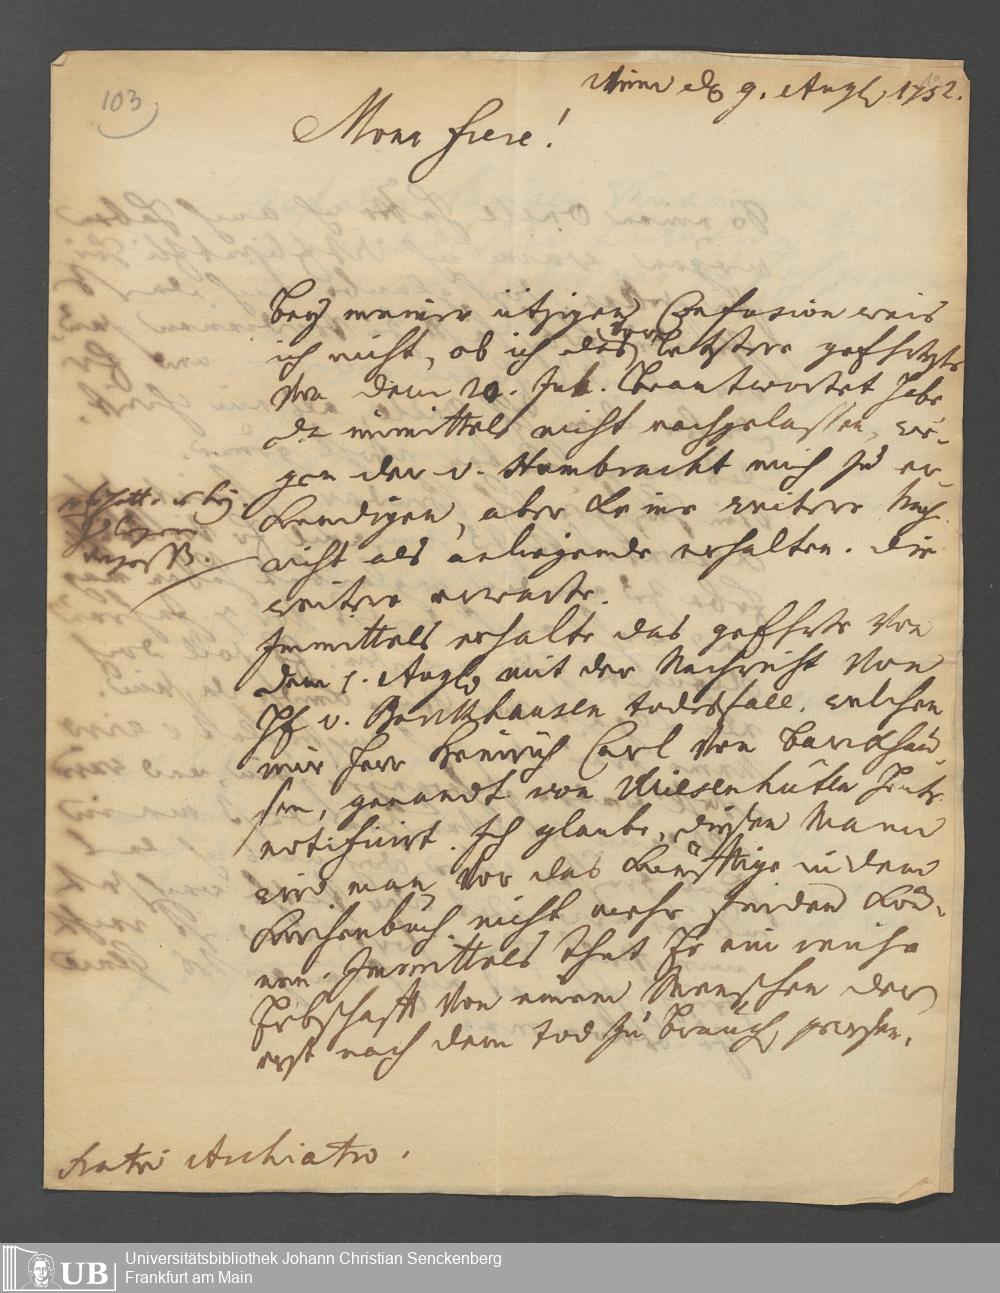 103
Wien d. 9. Augl 1752.
Mon frere!
Bey meiner itzigen Confusion weis
ich nicht, ob ich das letztere geschätzte
von dem 20. Jul. beantwortet habe
da inmittels nicht nachgelassen, we-
gen der v. Humbracht mich zu er-
kundigen, aber keine weitere Nach-
richt als anliegende erhalten. die
weitere erwarte.
Immittels erhalte das geschätzte von
dem 1. Augl mit der Nachricht von
H v. Barckhausen todesfall, welchen
mir Herr Heinrich Carl von Barckhau-
sen, genandt von Wiesenhütten heute
notificirt. Ich glaube, diesen Mann
wird man vor das künfftige in dem
Kirchenbuch nicht mehr finden kön-
nen. Immittels thut Er ein reiche
Erbschafft von einem Menschen der
erst nach dem tod zu brauchen gewesen.
Fratri Archiatro.
Universitätsbibliothek Johann Christian Senckenberg
Frankfurt am Main
UB